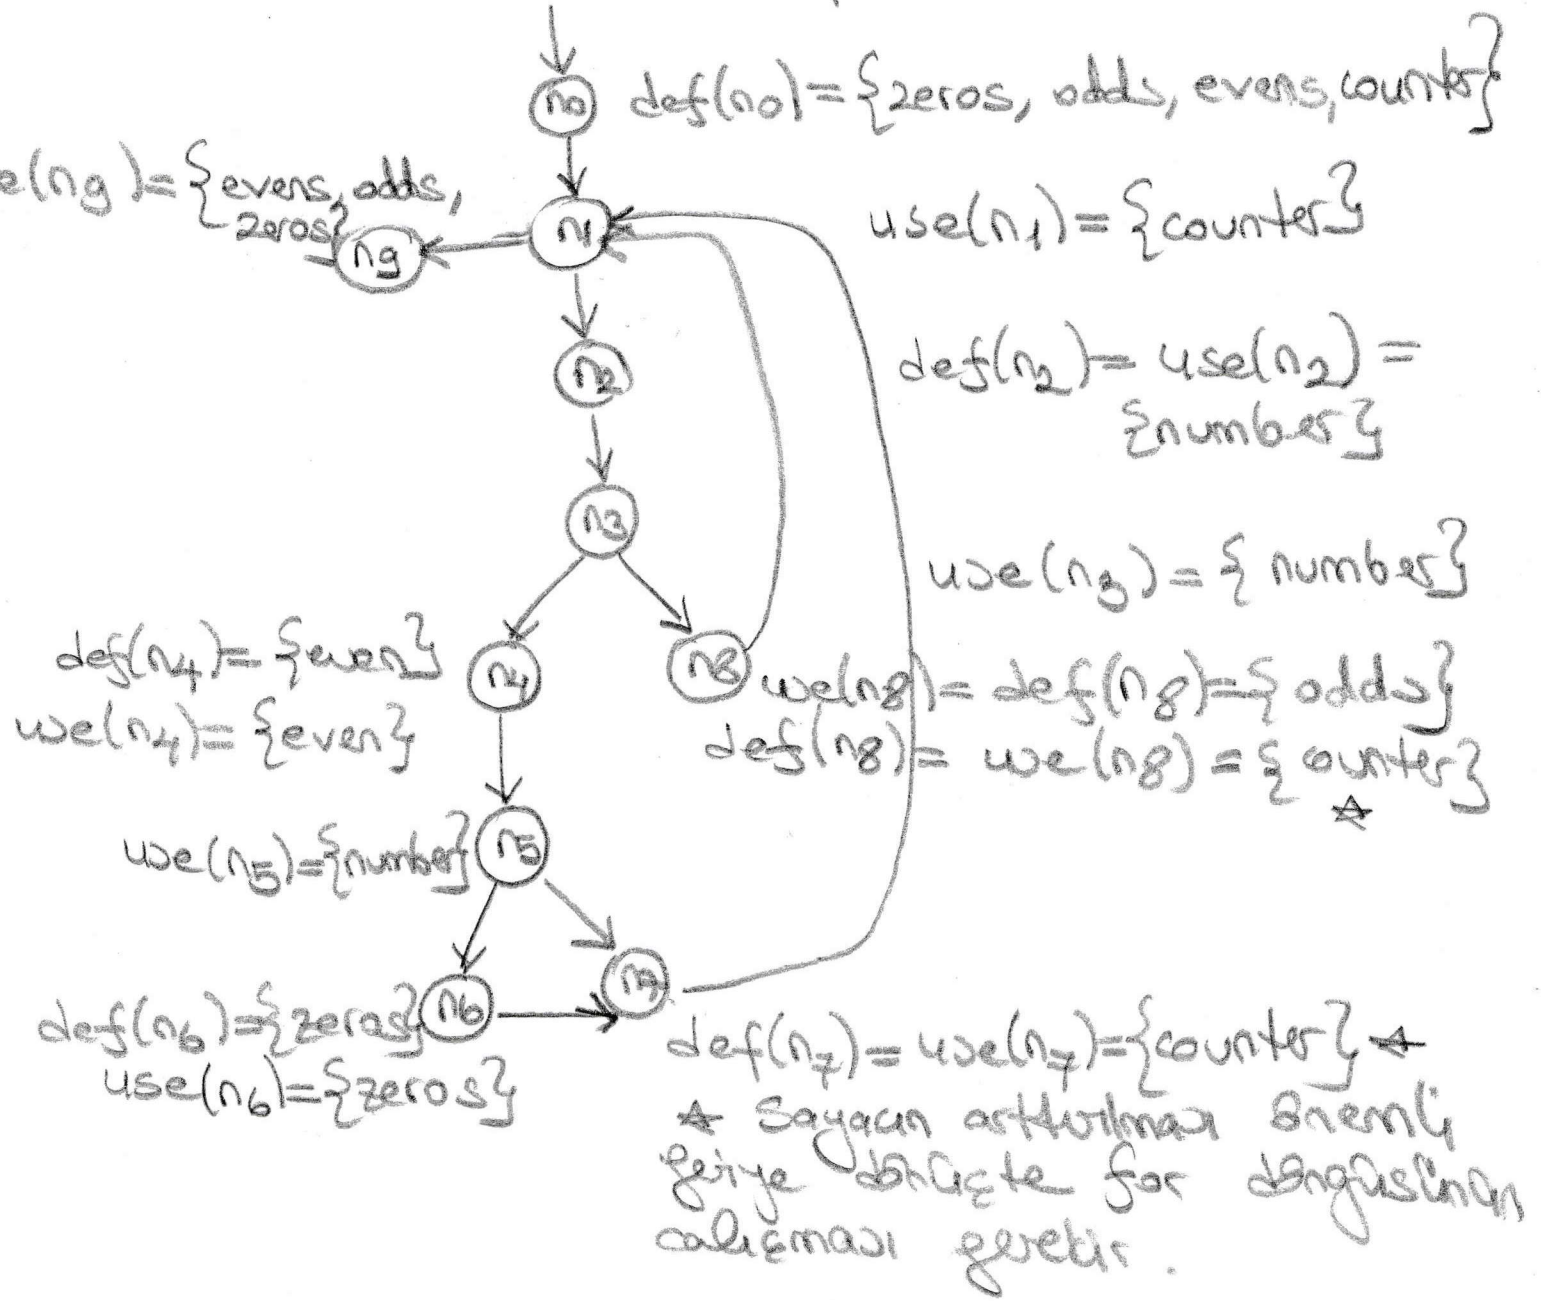 n0
def(n0)={zeros, odds, evens, counter}
e(n9)={evens, odds,
zeros}
n9
n1
use(n1)={counter}
n2
def(n2)= use(n2)=
{number}
n3
use(n3)={ number}
def(n4)= {even}
use(n4)= {even}
n4
n8
use(n8)= def(n8)={ odds}
def(n8)= use(n8)={ counter}
☆
use(n5)={number}
n5
def(n6)={zeros}
use(n6)={zeros}
n6
n7
def(n7)= use(n7)={counter} ☆
☆ Sayacın arttırılması önemli,
geriye dönüşte for döngüsünün
çalışması gerekir.